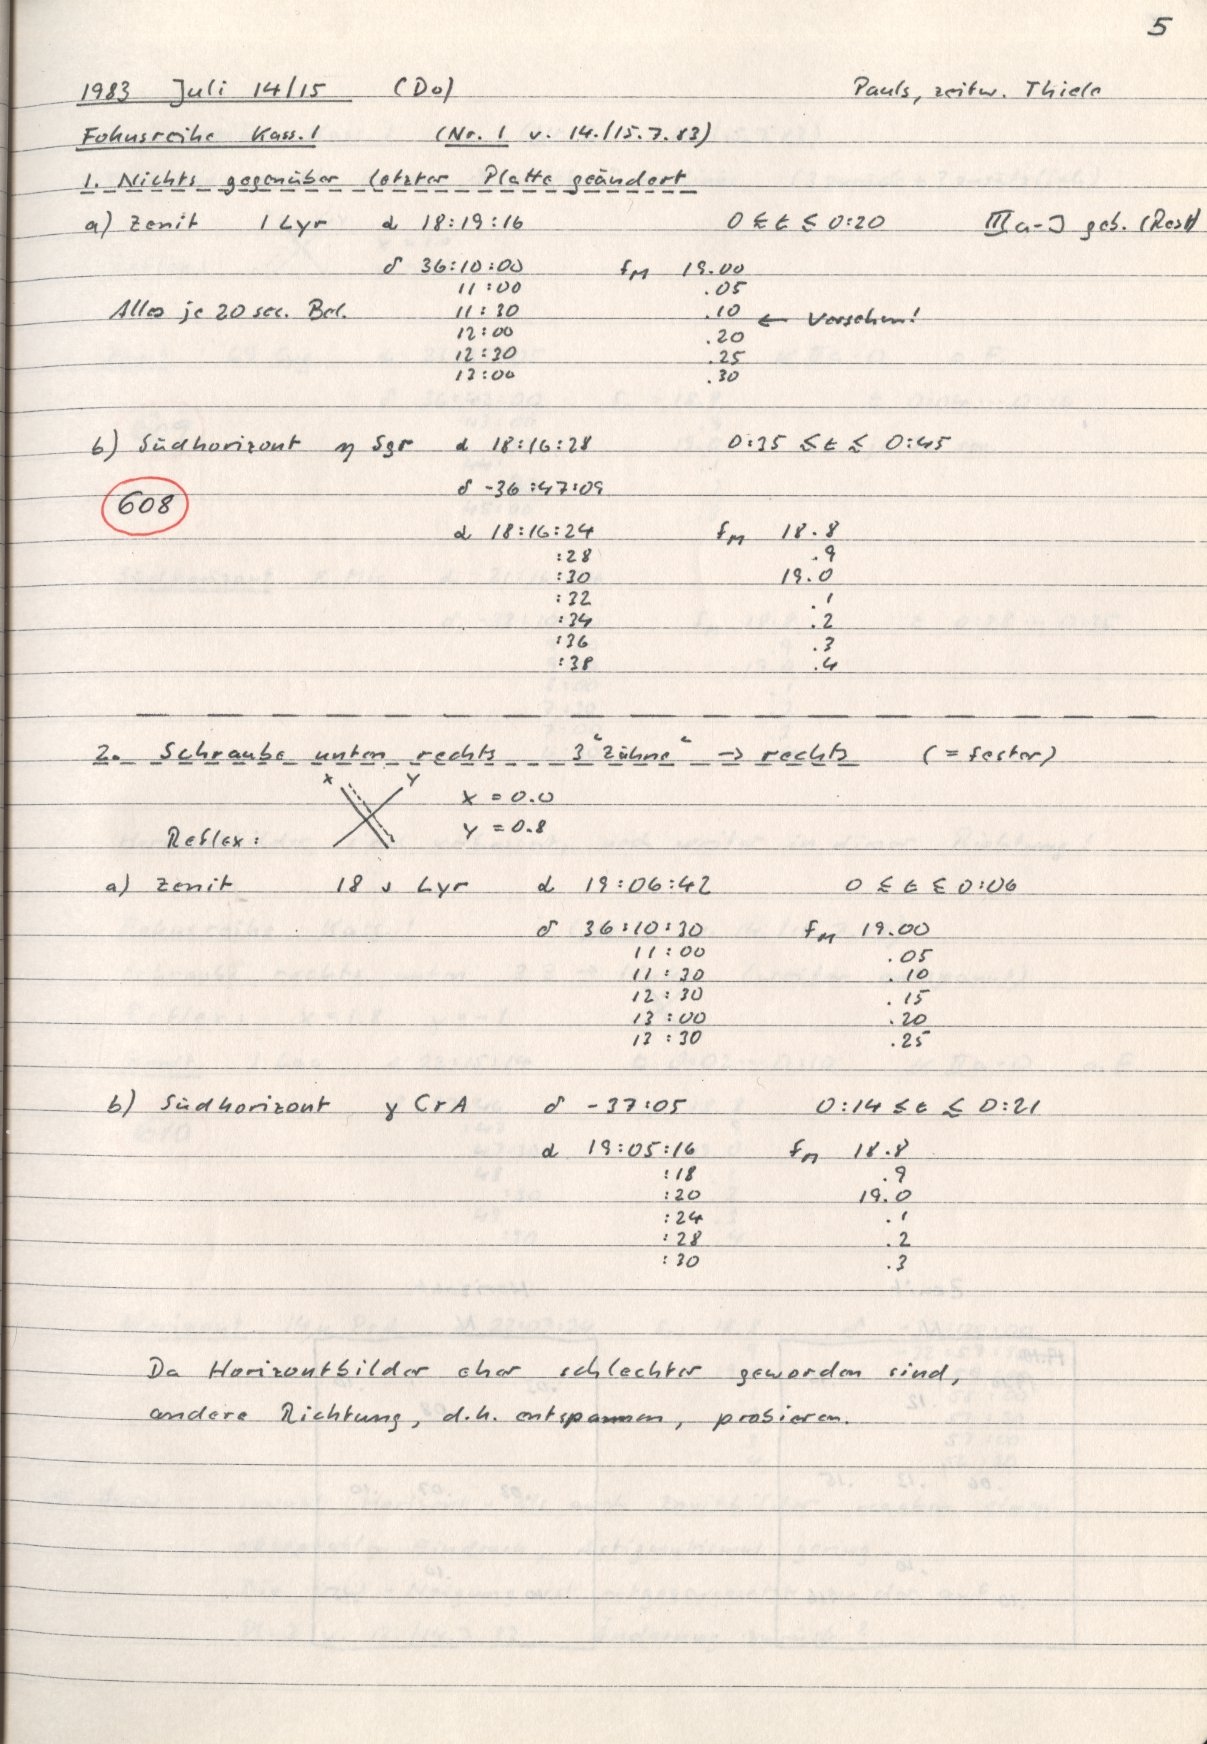 5
1983 Juli 14/15 (Do) Pauls, zeitw. Thiele
Fokusreihe Kass. 1 (Nr. 1 v. 14./15.7.83)
1. Nichts gegenüber letzter Platte geändert
a) Zenit 1 Lyr α 18:19:16 0 ≤ t ≤ 0:20 IIIa-J geb. (Rest)
δ 36:10:00 fM 19.00
11:00 .05
Alles je 20 sec. Bel. 11:30 .10
← Versehen!
12:00 .20
12:30 .25
13:00 .30
b) Südhorizont η Sgr α 18:16:28 0:35 ≤ t ≤ 0:45
δ -36:47:09
608
α 18:16:24 fM 18.8
:28 .9
:30 19.0
:32 .1
:34 .2
:36 .3
:38 .4
2. Schraube unten rechts 3 "Zähne" → rechts (= fester)
x y x = 0.0
Reflex: y = 0.8
a) Zenit 18 ι Lyr α 19:06:42 0 ≤ t ≤ 0:06
δ 36:10:30 fM 19.00
11:00 .05
11:30 .10
12:30 .15
13:00 .20
13:30 .25
b) Südhorizont γ CrA δ -37:05 0:14 ≤ t ≤ 0:21
α 19:05:16 fM 18.8
:18 .9
:20 19.0
:24 .1
:28 .2
:30 .3
Da Horizontbilder eher schlechter geworden sind,
andere Richtung, d.h. entspannen, probieren.